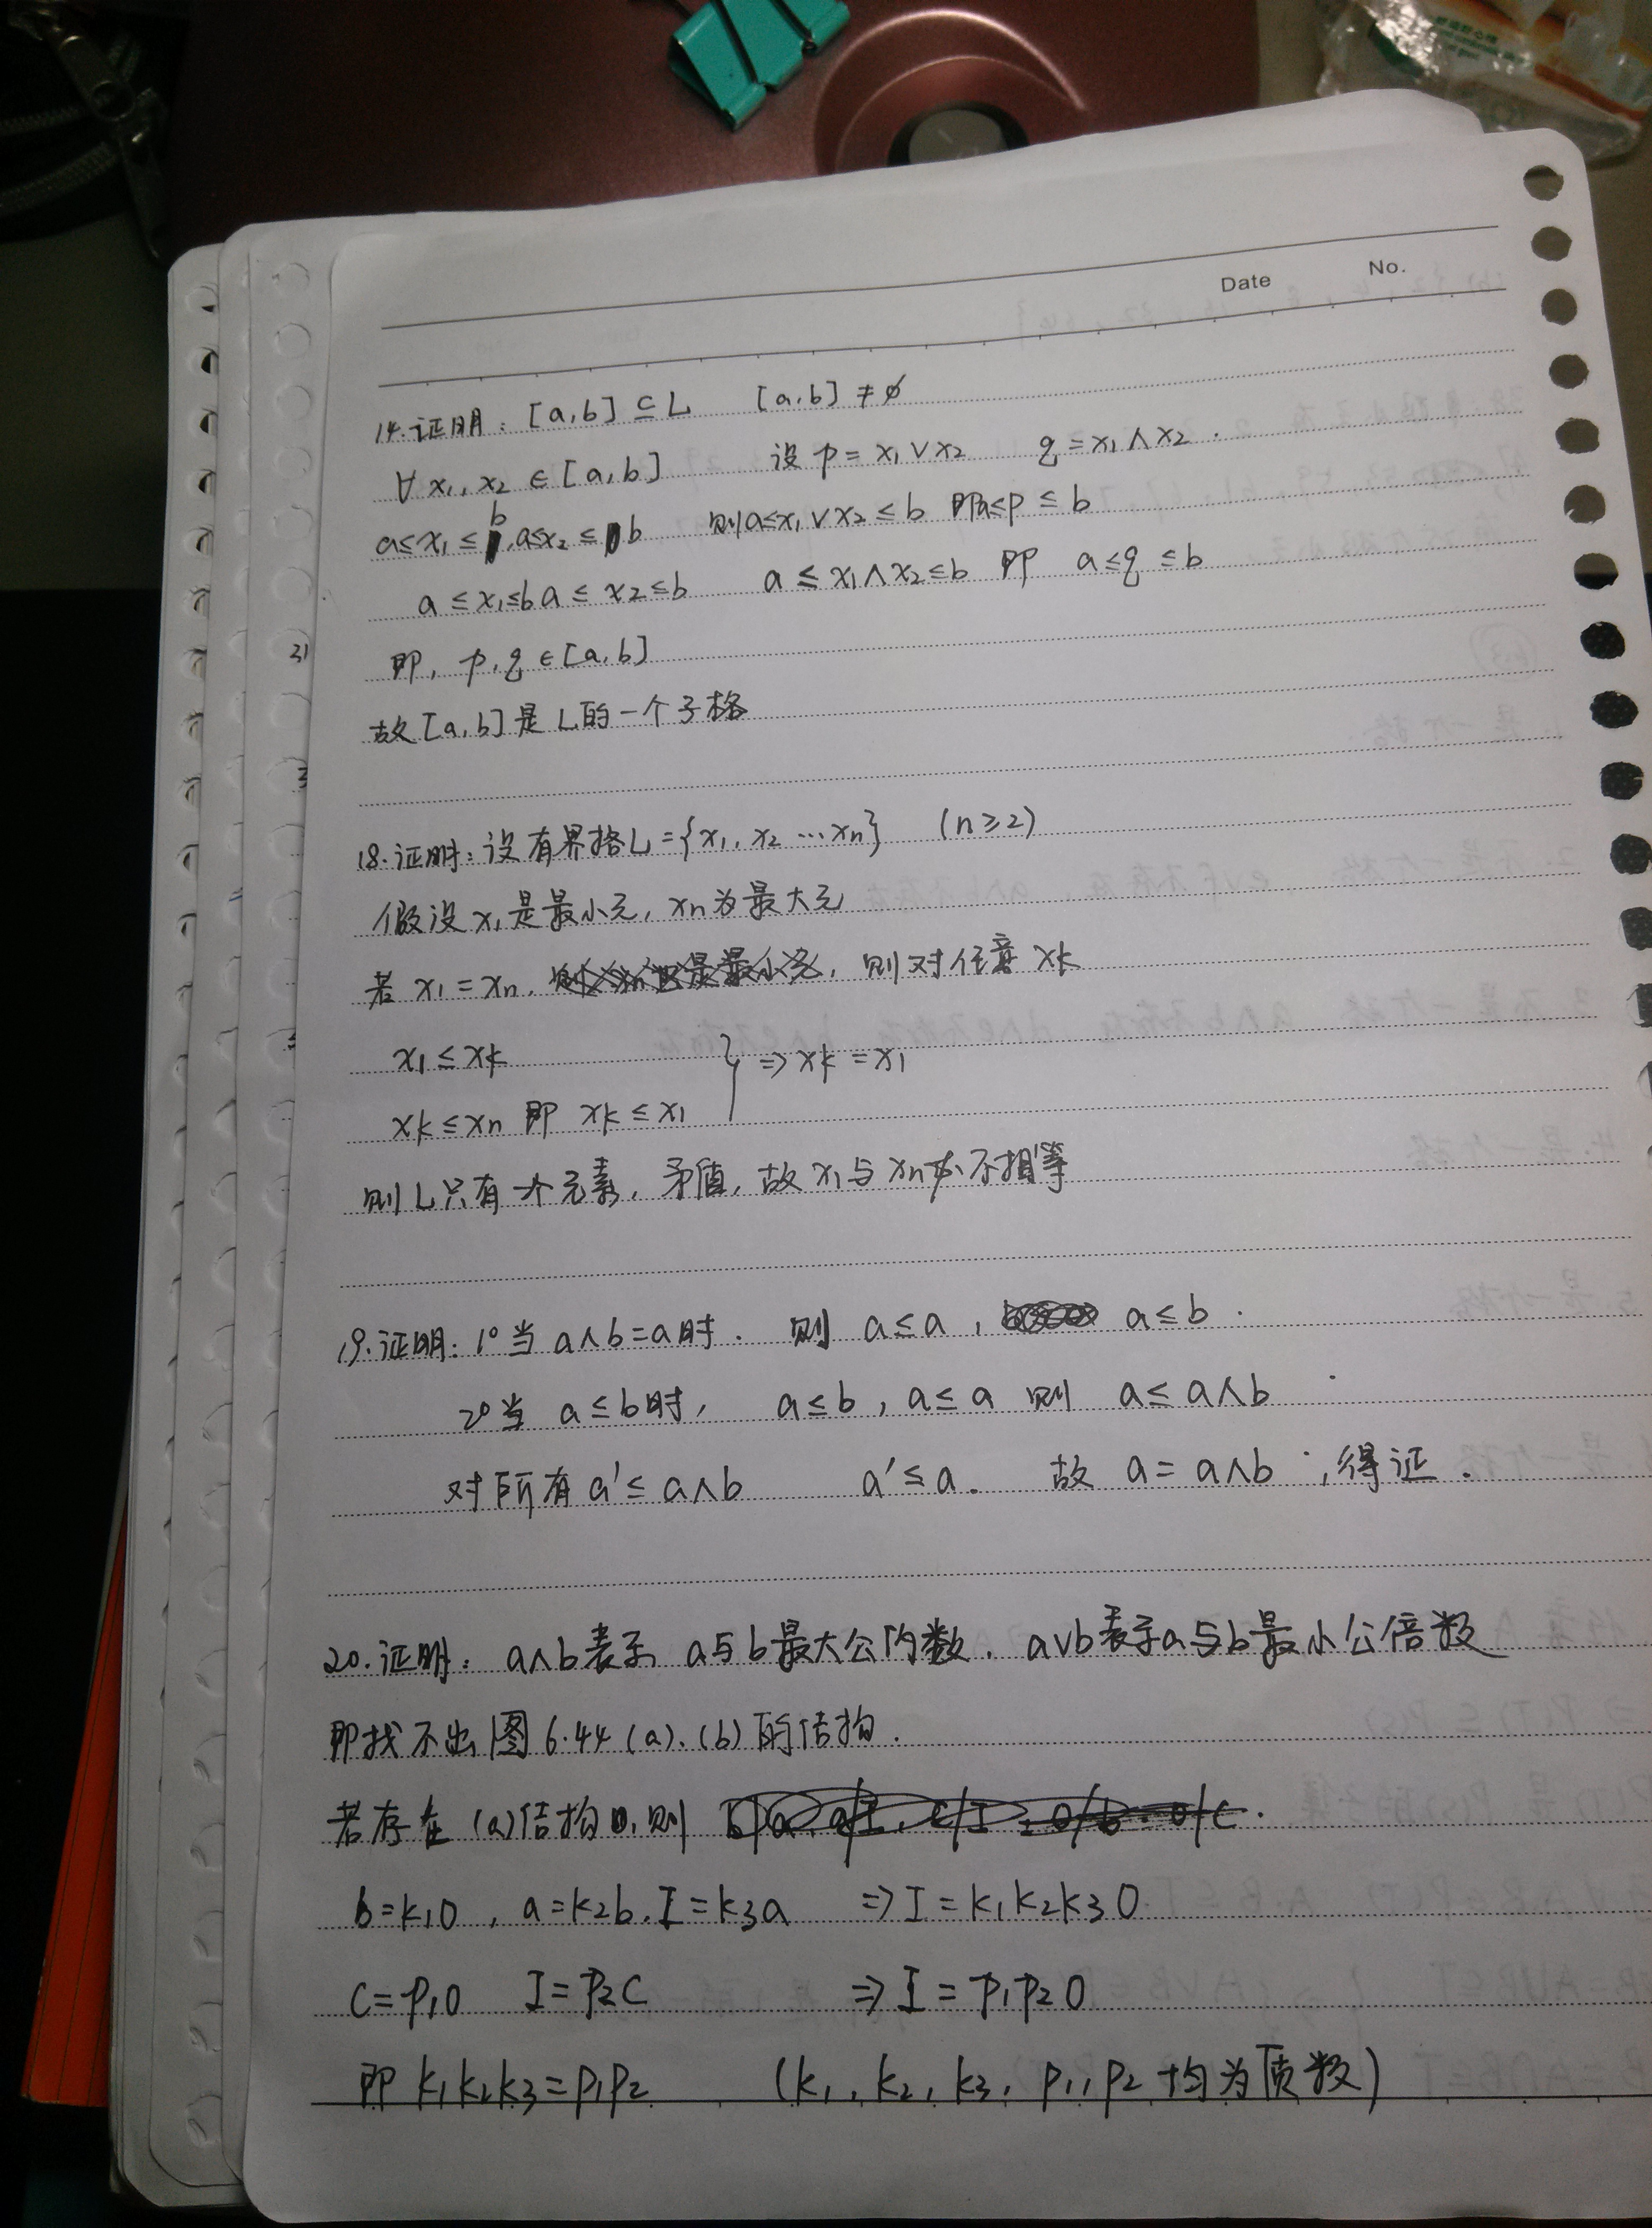 Date No.
14.证明: [a,b] ⊆ L [a,b] ≠ ∅
∀ x1, x2 ∈ [a,b] 设 p = x1 ∨ x2 q = x1 ∧ x2 .
a≤x1≤b, a≤x2≤b 则a≤x1∨x2≤b 即a≤p≤b
a≤x1≤b a≤x2≤b a≤x1∧x2≤b 即 a≤q≤b
即, p,q∈[a,b]
故[a,b]是L的一个子格
18.证明:设有界格L={x1, x2 …xn} (n≥2)
假设x1是最小元, xn为最大元
若 x1 = xn, 则对任意 xk
x1≤xk } ⇒ xk = x1
xk≤xn 即 xk≤x1
则L只有一个元素, 矛值, 故x1与xn 不相等
19.证明: 1° 当 a∧b=a时. 则 a≤a, a≤b .
2°当 a≤b时, a≤b, a≤a 则 a≤a∧b
对所有a'≤a∧b a'≤a. 故 a=a∧b ,得证.
20.证明: a∧b表示 a与b最大公约数. a∨b表示a与b最小公倍数
即找不出图6.44 (a).(b)的结构.
若存在(a)结构, 则
b=k10, a=k2b, I=k3a ⇒ I=k1k2k30
C=p10 I=p2C ⇒ I=p1p20
即 k1k2k3=p1p2 (k1, k2, k3, p1, p2 均为质数)
31
3